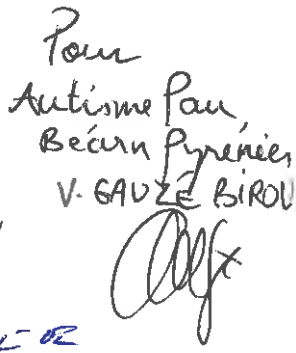 Pour
Autisme Pau,
Béarn Pyrénées
V. GAUZÉ BIROU